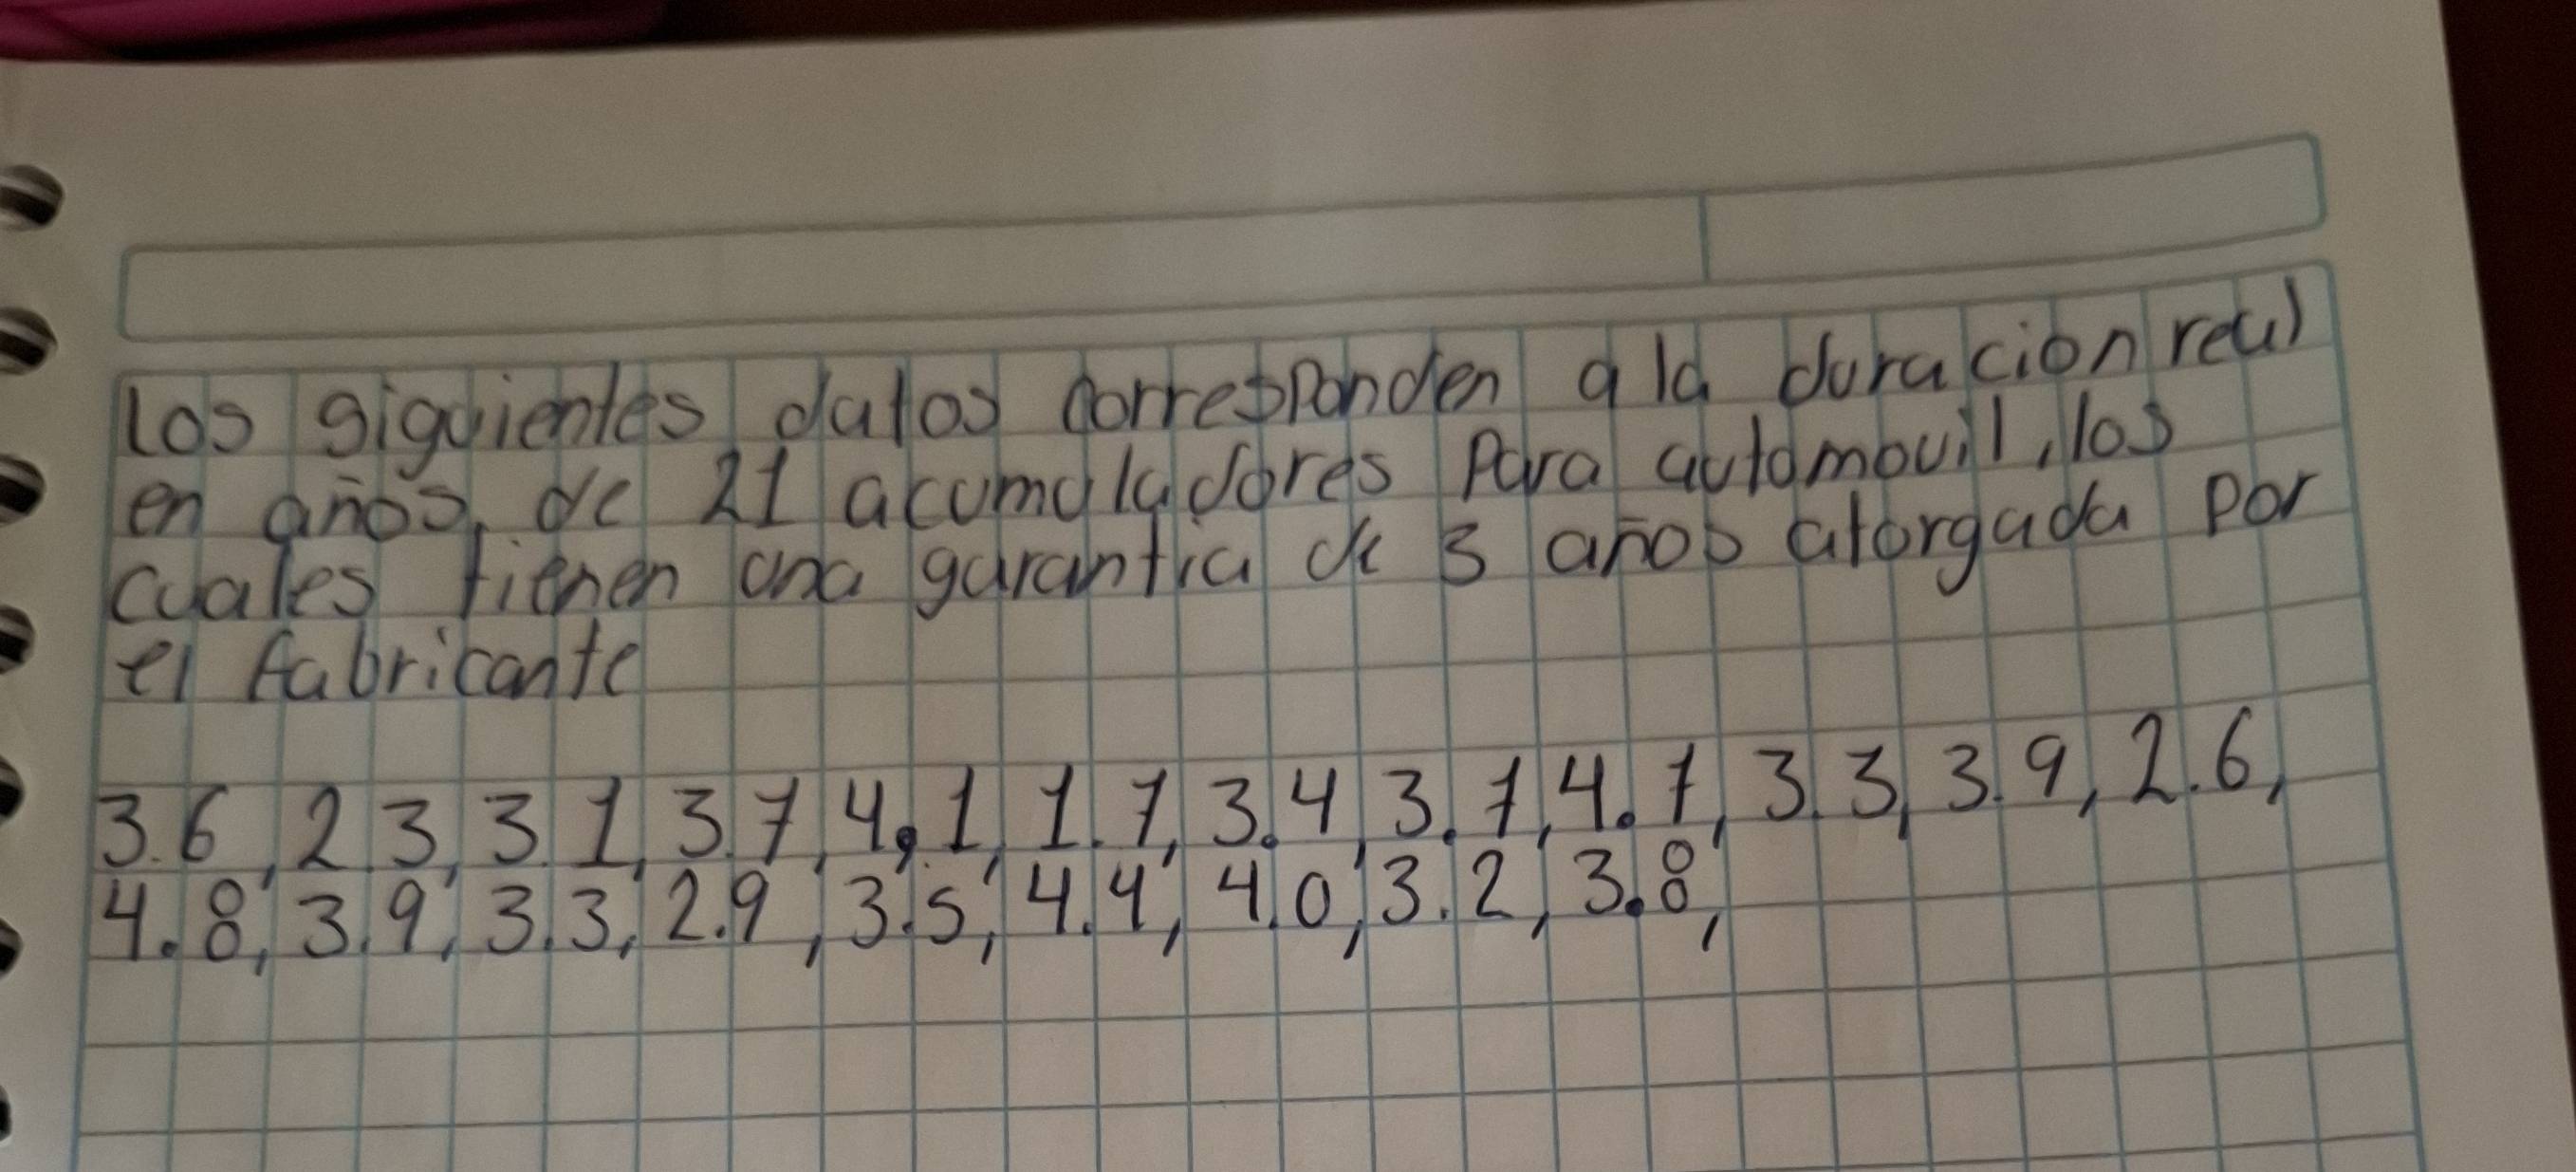 Los siguientes datos corresponden a la duracion real
en años, de 21 acumuladores para automovil, los
cuales tienen una garantia de 3 años atorgada por
el fabricante
3.6, 2.3, 3.1, 3.7, 4.1, 1.7, 3.4, 3.7, 4.7, 3.3, 3.9, 2.6,
4.8, 3.9, 3.3, 2.9, 3.5, 4.4, 4.0, 3.2, 3.8,